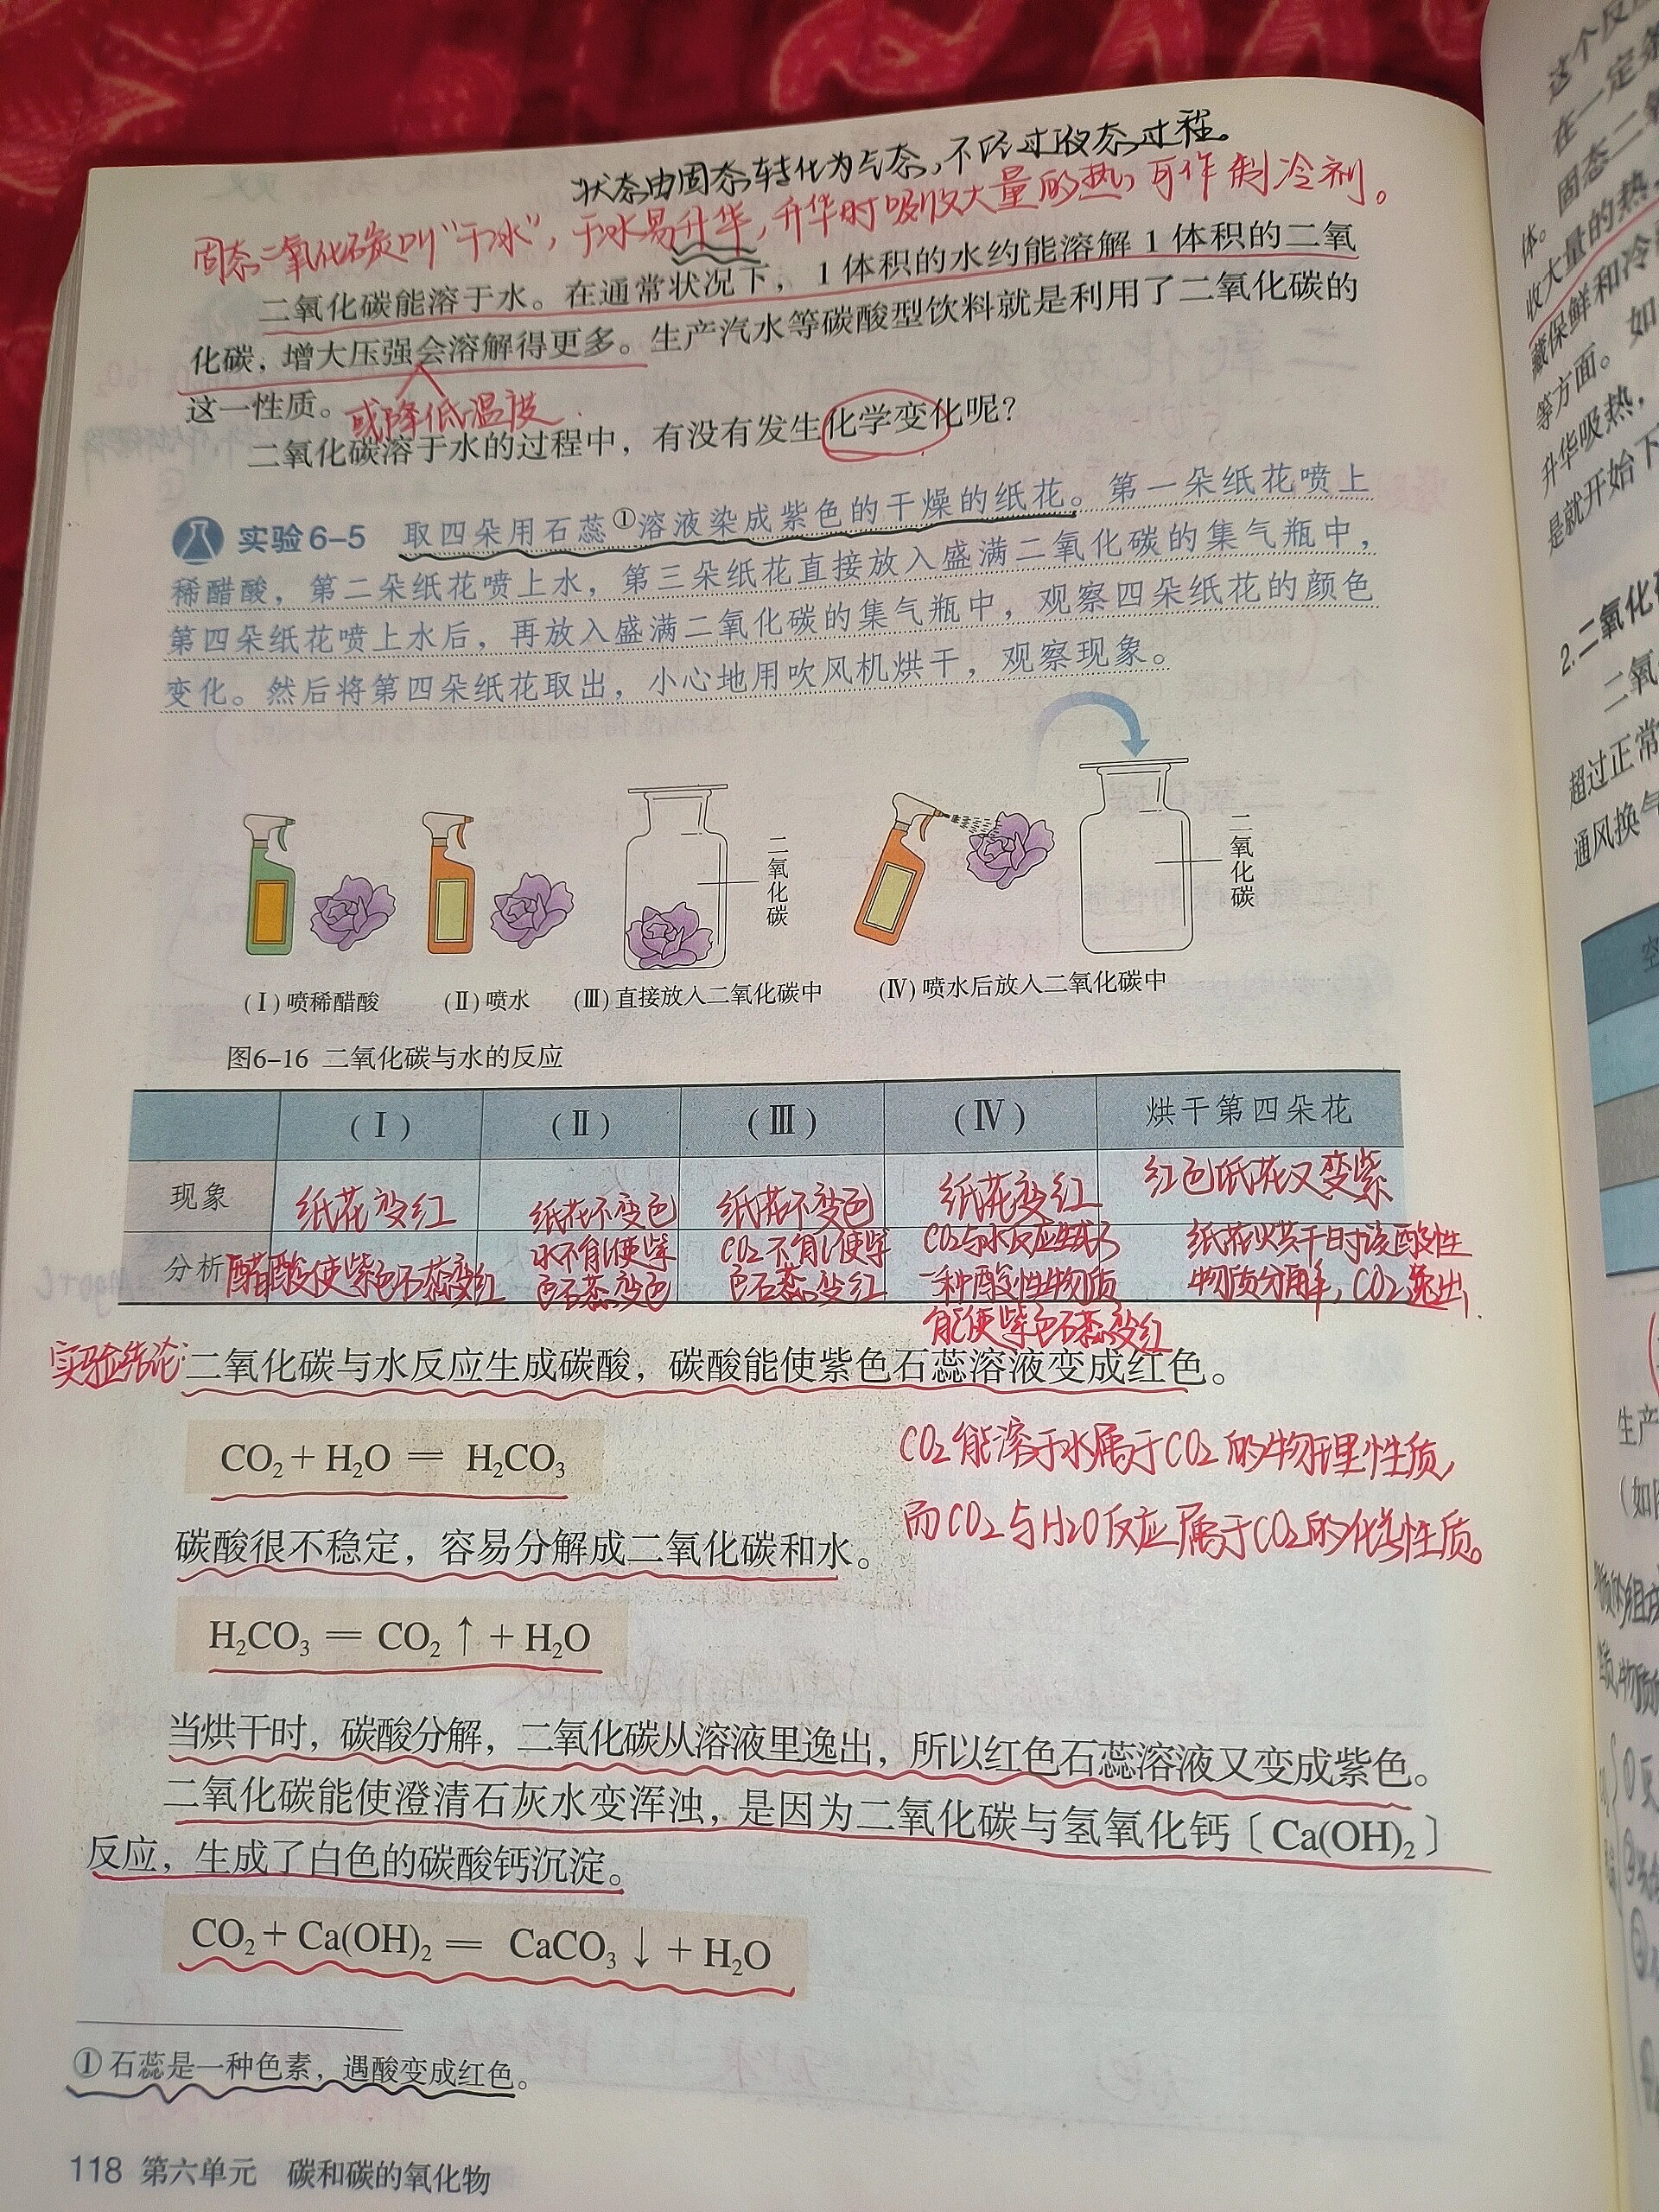 状态由固态转化为气态，不经过液态过程。
固态二氧化碳叫“干冰”，干冰易升华，升华时吸收大量的热，可作制冷剂。
二氧化碳能溶于水。在通常状况下，1体积的水约能溶解1体积的二氧
化碳，增大压强会溶解得更多。生产汽水等碳酸型饮料就是利用了二氧化碳的
这一性质。
或降低温度
二氧化碳溶于水的过程中，有没有发生化学变化呢？
实验6-5 取四朵用石蕊①溶液染成紫色的干燥的纸花。第一朵纸花喷上
稀醋酸，第二朵纸花喷上水，第三朵纸花直接放入盛满二氧化碳的集气瓶中，
第四朵纸花喷上水后，再放入盛满二氧化碳的集气瓶中，观察四朵纸花的颜色
变化。然后将第四朵纸花取出，小心地用吹风机烘干，观察现象。
二氧化碳
二氧化碳
(Ⅰ)喷稀醋酸 (Ⅱ)喷水 (Ⅲ)直接放入二氧化碳中 (Ⅳ)喷水后放入二氧化碳中
图6-16 二氧化碳与水的反应
(Ⅰ) (Ⅱ) (Ⅲ) (Ⅳ) 烘干第四朵花
现象 纸花变红 纸花不变色 纸花不变色 纸花变红 红色纸花又变紫
分析 醋酸使紫色石蕊变红
水不能使紫
色石蕊变色
CO2不能使紫
色石蕊变红
CO2与水反应生成了
一种酸性物质
能使紫色石蕊变红
纸花烘干时该酸性
物质分解，CO2逸出
实验结论：二氧化碳与水反应生成碳酸，碳酸能使紫色石蕊溶液变成红色。
CO₂ + H₂O ＝ H₂CO₃
CO2能溶于水属于CO2的物理性质，
而CO2与H2O反应属于CO2的化学性质。
碳酸很不稳定，容易分解成二氧化碳和水。
H₂CO₃ ＝ CO₂ ↑ + H₂O
当烘干时，碳酸分解，二氧化碳从溶液里逸出，所以红色石蕊溶液又变成紫色。
二氧化碳能使澄清石灰水变浑浊，是因为二氧化碳与氢氧化钙〔Ca(OH)₂〕
反应，生成了白色的碳酸钙沉淀。
CO₂ + Ca(OH)₂ ＝ CaCO₃ ↓ + H₂O
①石蕊是一种色素，遇酸变成红色。
118 第六单元 碳和碳的氧化物
这个反
在一定条
固态二氧
体。
收大量的热，
藏保鲜和冷
等方面。如
升华吸热，
是就开始下
2.二氧化碳
二氧
超过正常
通风换气
空
生产
（如